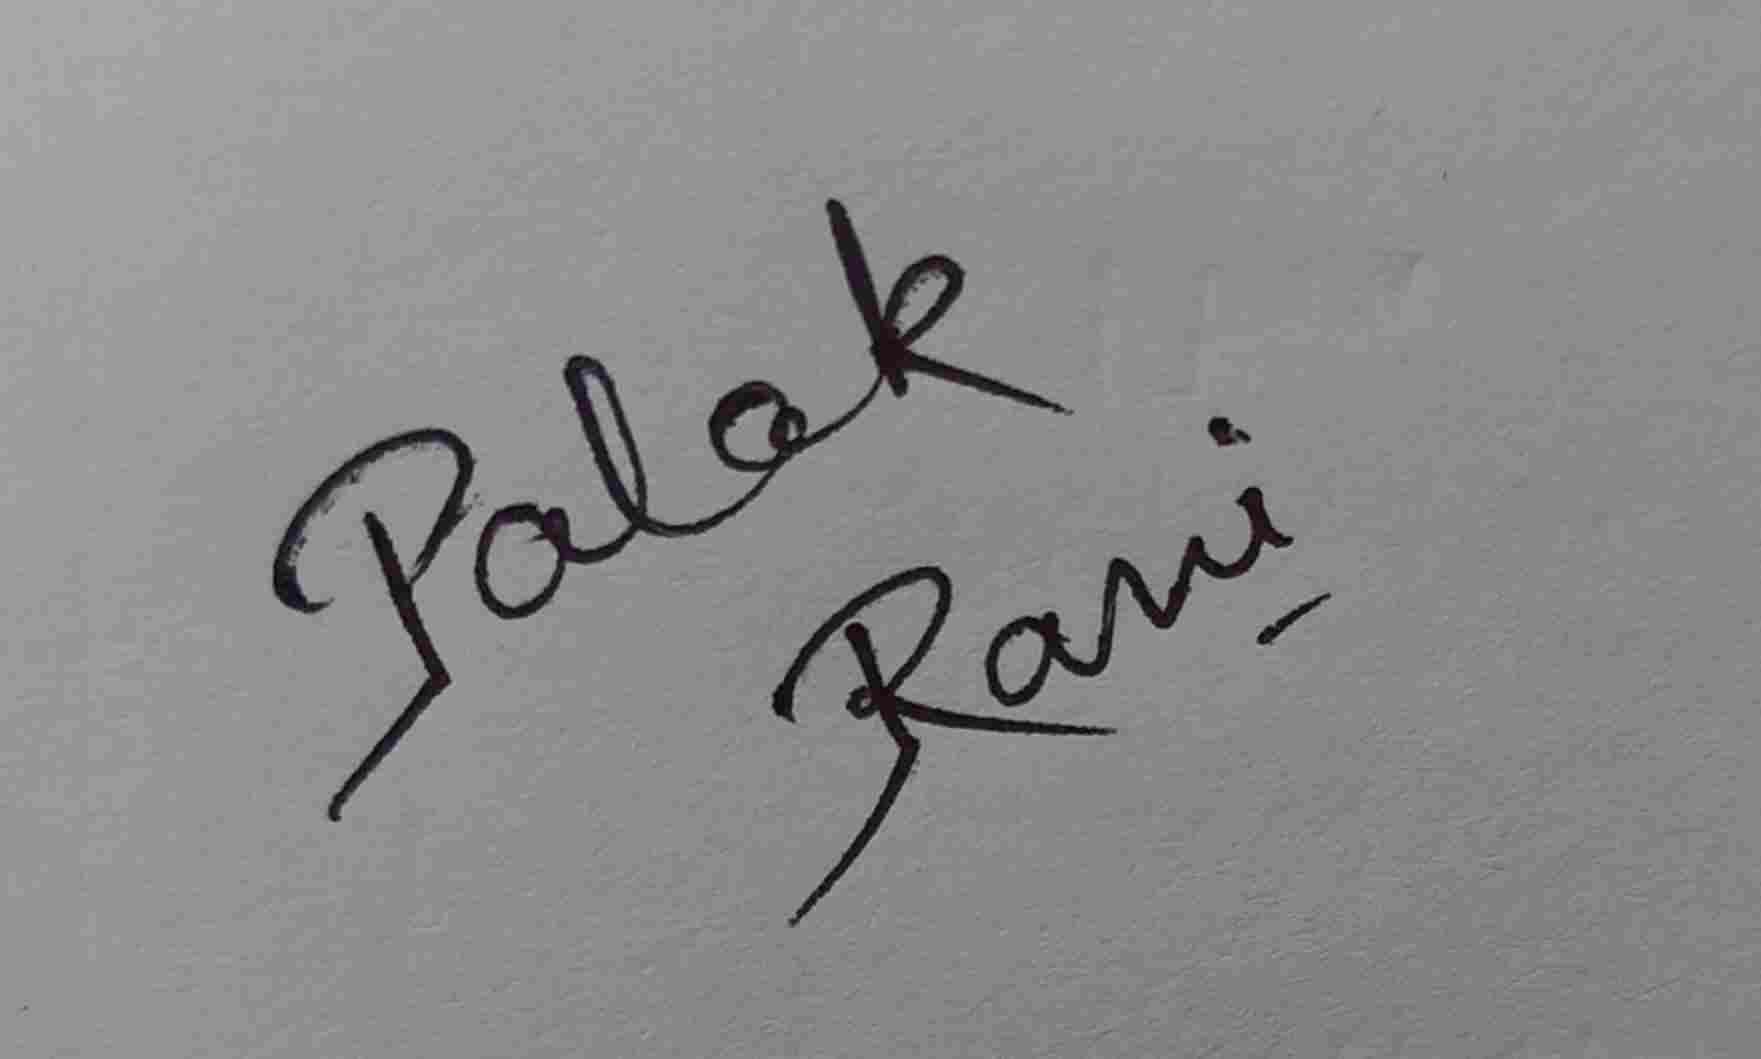 Palak
Rani